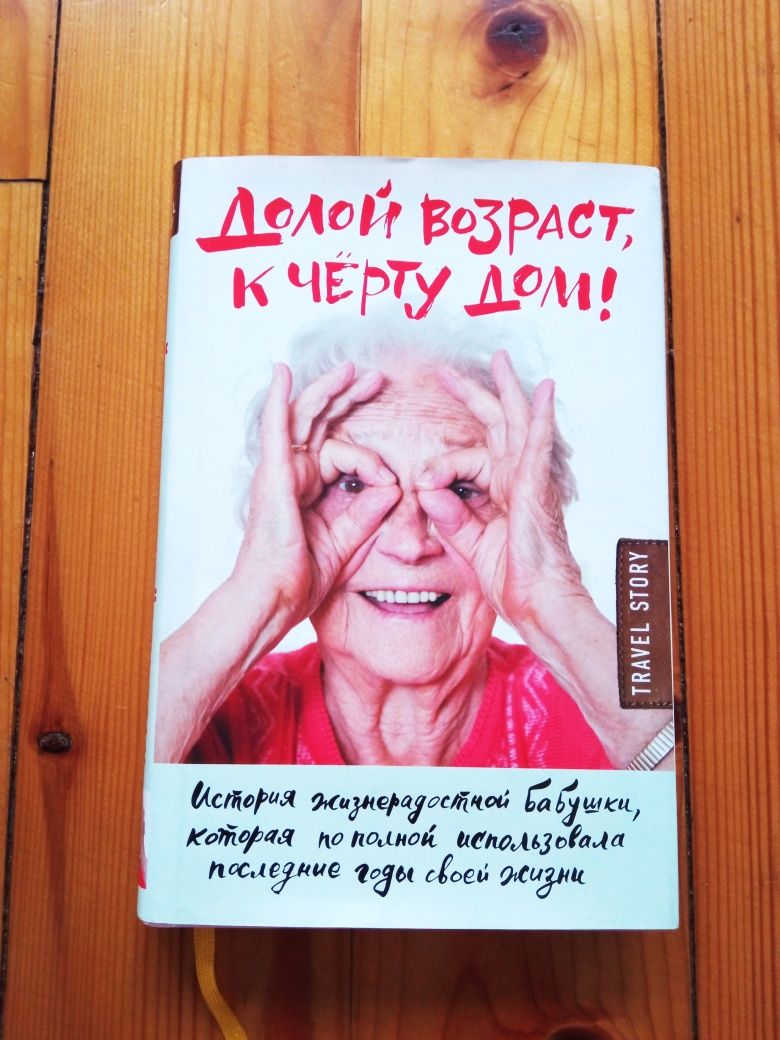 Долой возраст,
к чёрту дом!
TRAVEL STORY
История жизнерадостной бабушки,
которая по полной использовала
последние годы своей жизни